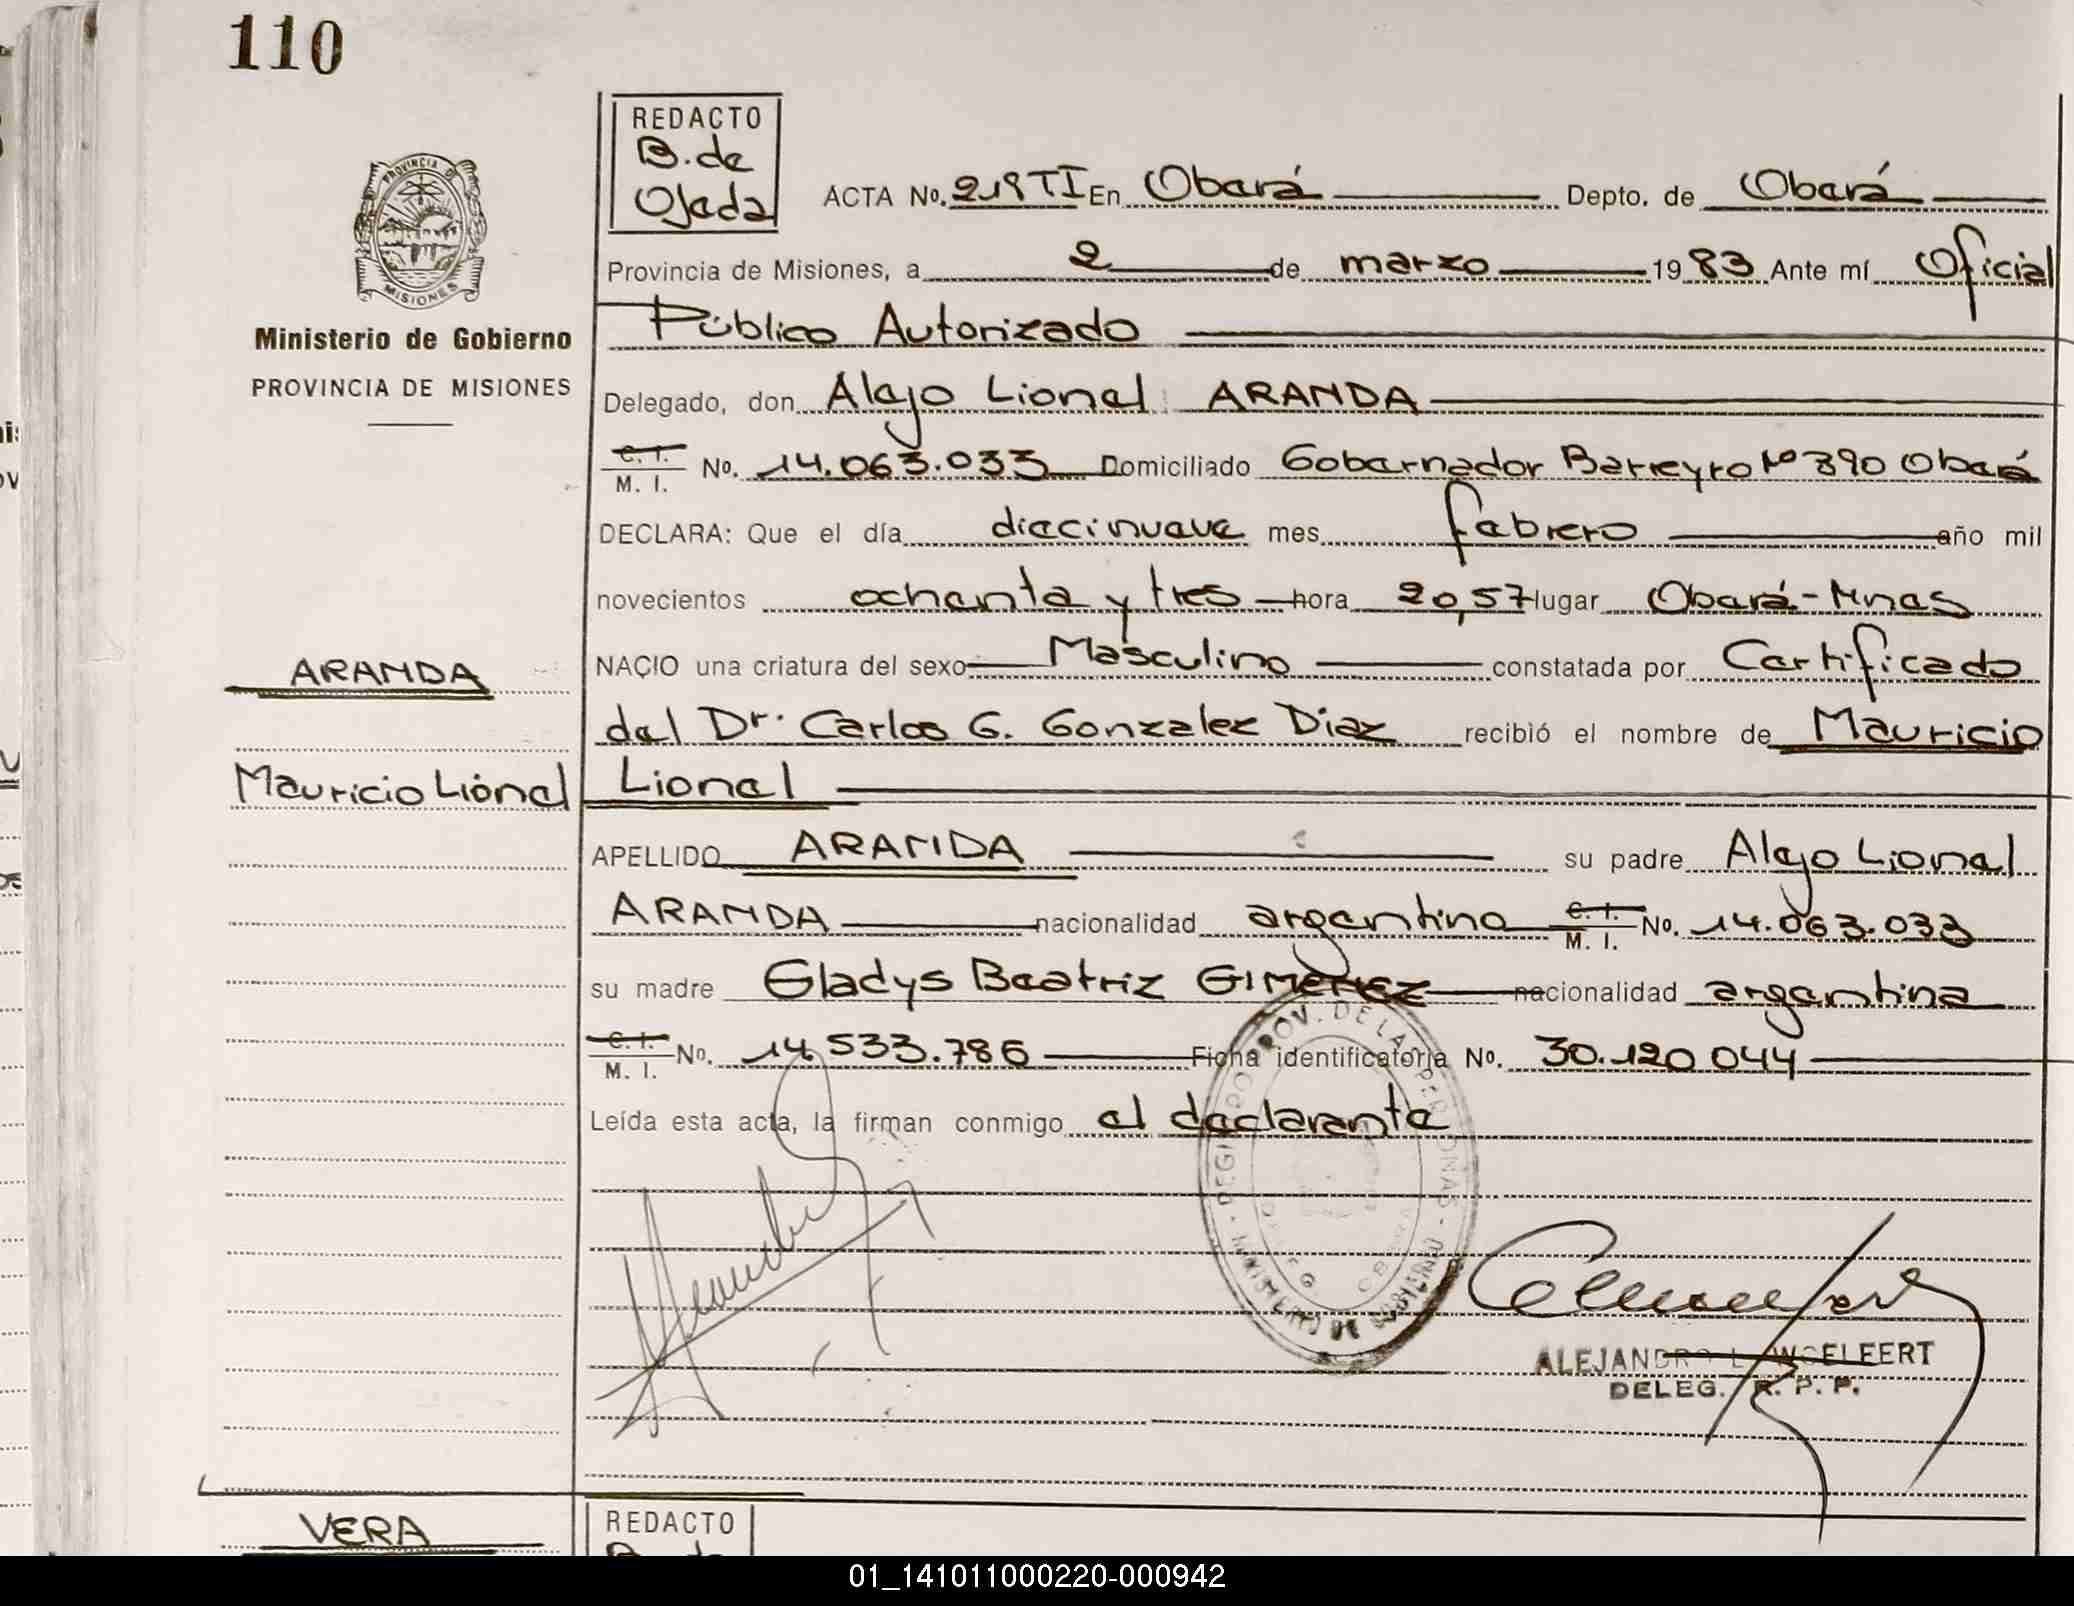 110
REDACTO
B. de
Ojeda
ACTA No. 219 TI En Oberá Depto. de Oberá
Provincia de Misiones, a 2 de marzo 1983 Ante mí Oficial
Público Autorizado
Ministerio de Gobierno
PROVINCIA DE MISIONES
Delegado, don Alejo Lionel ARANDA
C. I.
M. I. No. 14.063.033 Domiciliado Gobernador Barreyro Nº 390 Oberá
DECLARA: Que el día diecinueve mes febrero año mil
novecientos ochenta y tres hora 20,57 lugar Oberá-Mnes
NACIO una criatura del sexo Masculino constatada por Certificado
ARANDA
del Dr. Carlos G. Gonzalez Diaz recibió el nombre de Mauricio
Mauricio Lionel
Lionel
APELLIDO ARANDA su padre Alejo Lionel
ARANDA nacionalidad argentino C. I. M. I. No. 14.063.033
su madre Gladys Beatriz GIMENEZ nacionalidad argentina
C. I.
M. I. No. 14.533.786 Ficha identificatoria No. 30.120.044
Leída esta acta, la firman conmigo el declarante
REGISTRO PROV. DE LAS PERSONAS - MINISTERIO DE GOBIERNO
ALEJANDRO L. WOELFERT
DELEG. R. P. P.
VERA
REDACTO
01_141011000220-000942